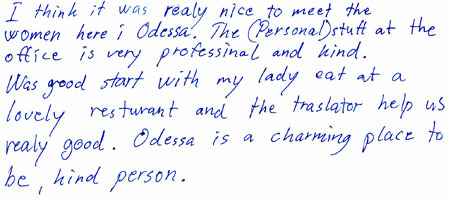 I think it was realy nice to meet the
women here i Odessa. The (Personal)stuff at the
office is very professinal and kind.
Was good start with my lady eat at a
lovely resturant and the traslator help us
realy good. Odessa is a charming place to
be, kind person.